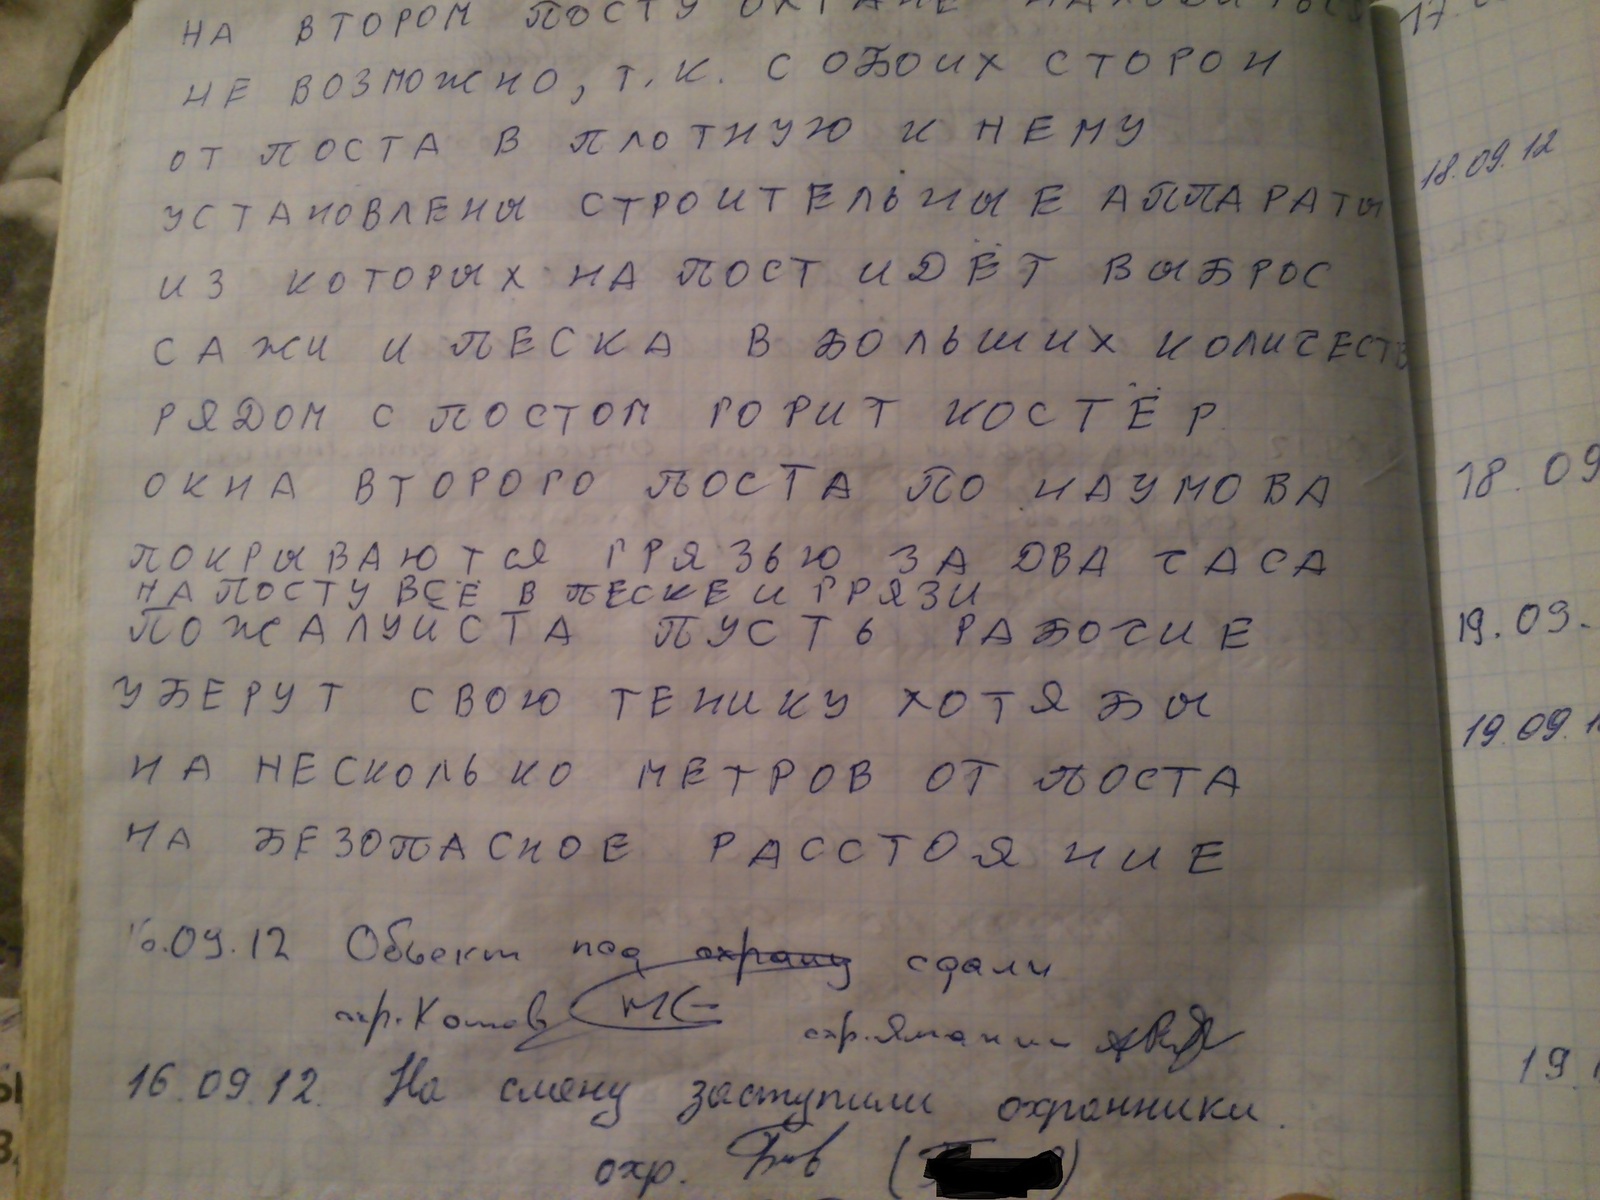 НА ВТОРОМ ПОСТУ ОХРАНЕ НАХОДИТЬСЯ
НЕ ВОЗМОЖНО, Т.К. С ОБОИХ СТОРОН
ОТ ПОСТА В ПЛОТНУЮ К НЕМУ
УСТАНОВЛЕНЫ СТРОИТЕЛЬНЫЕ АППАРАТЫ
ИЗ КОТОРЫХ НА ПОСТ ИДЁТ ВЫБРОС
САЖИ И ПЕСКА В БОЛЬШИХ КОЛИЧЕСТВ
РЯДОМ С ПОСТОМ ГОРИТ КОСТЁР
ОКНА ВТОРОГО ПОСТА ПО НАУМОВА
ПОКРЫВАЮТСЯ ГРЯЗЬЮ ЗА ДВА ЧАСА
НА ПОСТУ ВСЁ В ПЕСКЕ И ГРЯЗИ
ПОЖАЛУЙСТА ПУСТЬ РАБОЧИЕ
УБЕРУТ СВОЮ ТЕНИКУ ХОТЯ БЫ
НА НЕСКОЛЬКО МЕТРОВ ОТ ПОСТА
НА БЕЗОПАСНОЕ РАССТОЯНИЕ
16.09.12 Объект под охрану сдали
охр. Котов охр.
16.09.12. На смену заступили охранники.
охр.
17.
18.09.12
18.09
19.09.
19.09.1
19.